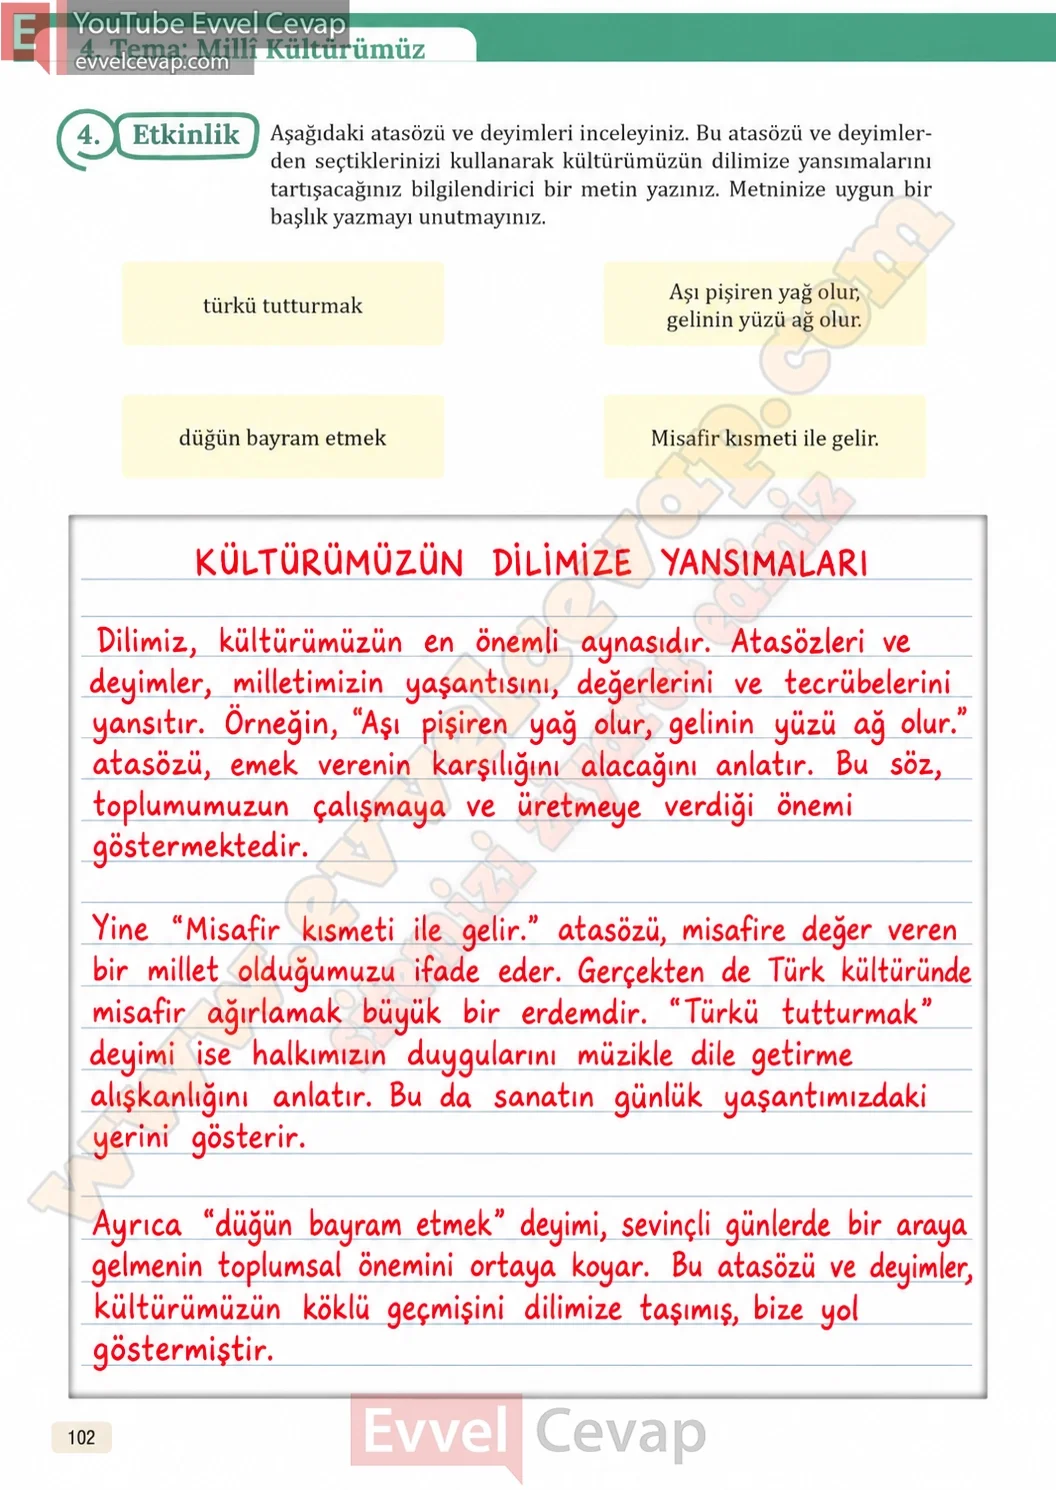 YouTube Evvel Cevap
evvelcevap.com
4. Tema: Millî Kültürümüz
4. Etkinlik
Aşağıdaki atasözü ve deyimleri inceleyiniz. Bu atasözü ve deyimler-
den seçtiklerinizi kullanarak kültürümüzün dilimize yansımalarını
tartışacağınız bilgilendirici bir metin yazınız. Metninize uygun bir
başlık yazmayı unutmayınız.
türkü tutturmak
Aşı pişiren yağ olur,
gelinin yüzü ağ olur.
düğün bayram etmek
Misafir kısmeti ile gelir.
KÜLTÜRÜMÜZÜN DİLİMİZE YANSIMALARI
Dilimiz, kültürümüzün en önemli aynasıdır. Atasözleri ve
deyimler, milletimizin yaşantısını, değerlerini ve tecrübelerini
yansıtır. Örneğin, “Aşı pişiren yağ olur, gelinin yüzü ağ olur.”
atasözü, emek verenin karşılığını alacağını anlatır. Bu söz,
toplumumuzun çalışmaya ve üretmeye verdiği önemi
göstermektedir.
Yine “Misafir kısmeti ile gelir.” atasözü, misafire değer veren
bir millet olduğumuzu ifade eder. Gerçekten de Türk kültüründe
misafir ağırlamak büyük bir erdemdir. “Türkü tutturmak”
deyimi ise halkımızın duygularını müzikle dile getirme
alışkanlığını anlatır. Bu da sanatın günlük yaşantımızdaki
yerini gösterir.
Ayrıca “düğün bayram etmek” deyimi, sevinçli günlerde bir araya
gelmenin toplumsal önemini ortaya koyar. Bu atasözü ve deyimler,
kültürümüzün köklü geçmişini dilimize taşımış, bize yol
göstermiştir.
www.evvelcevap.com
sitemizi ziyaret ediniz
102
Evvel Cevap